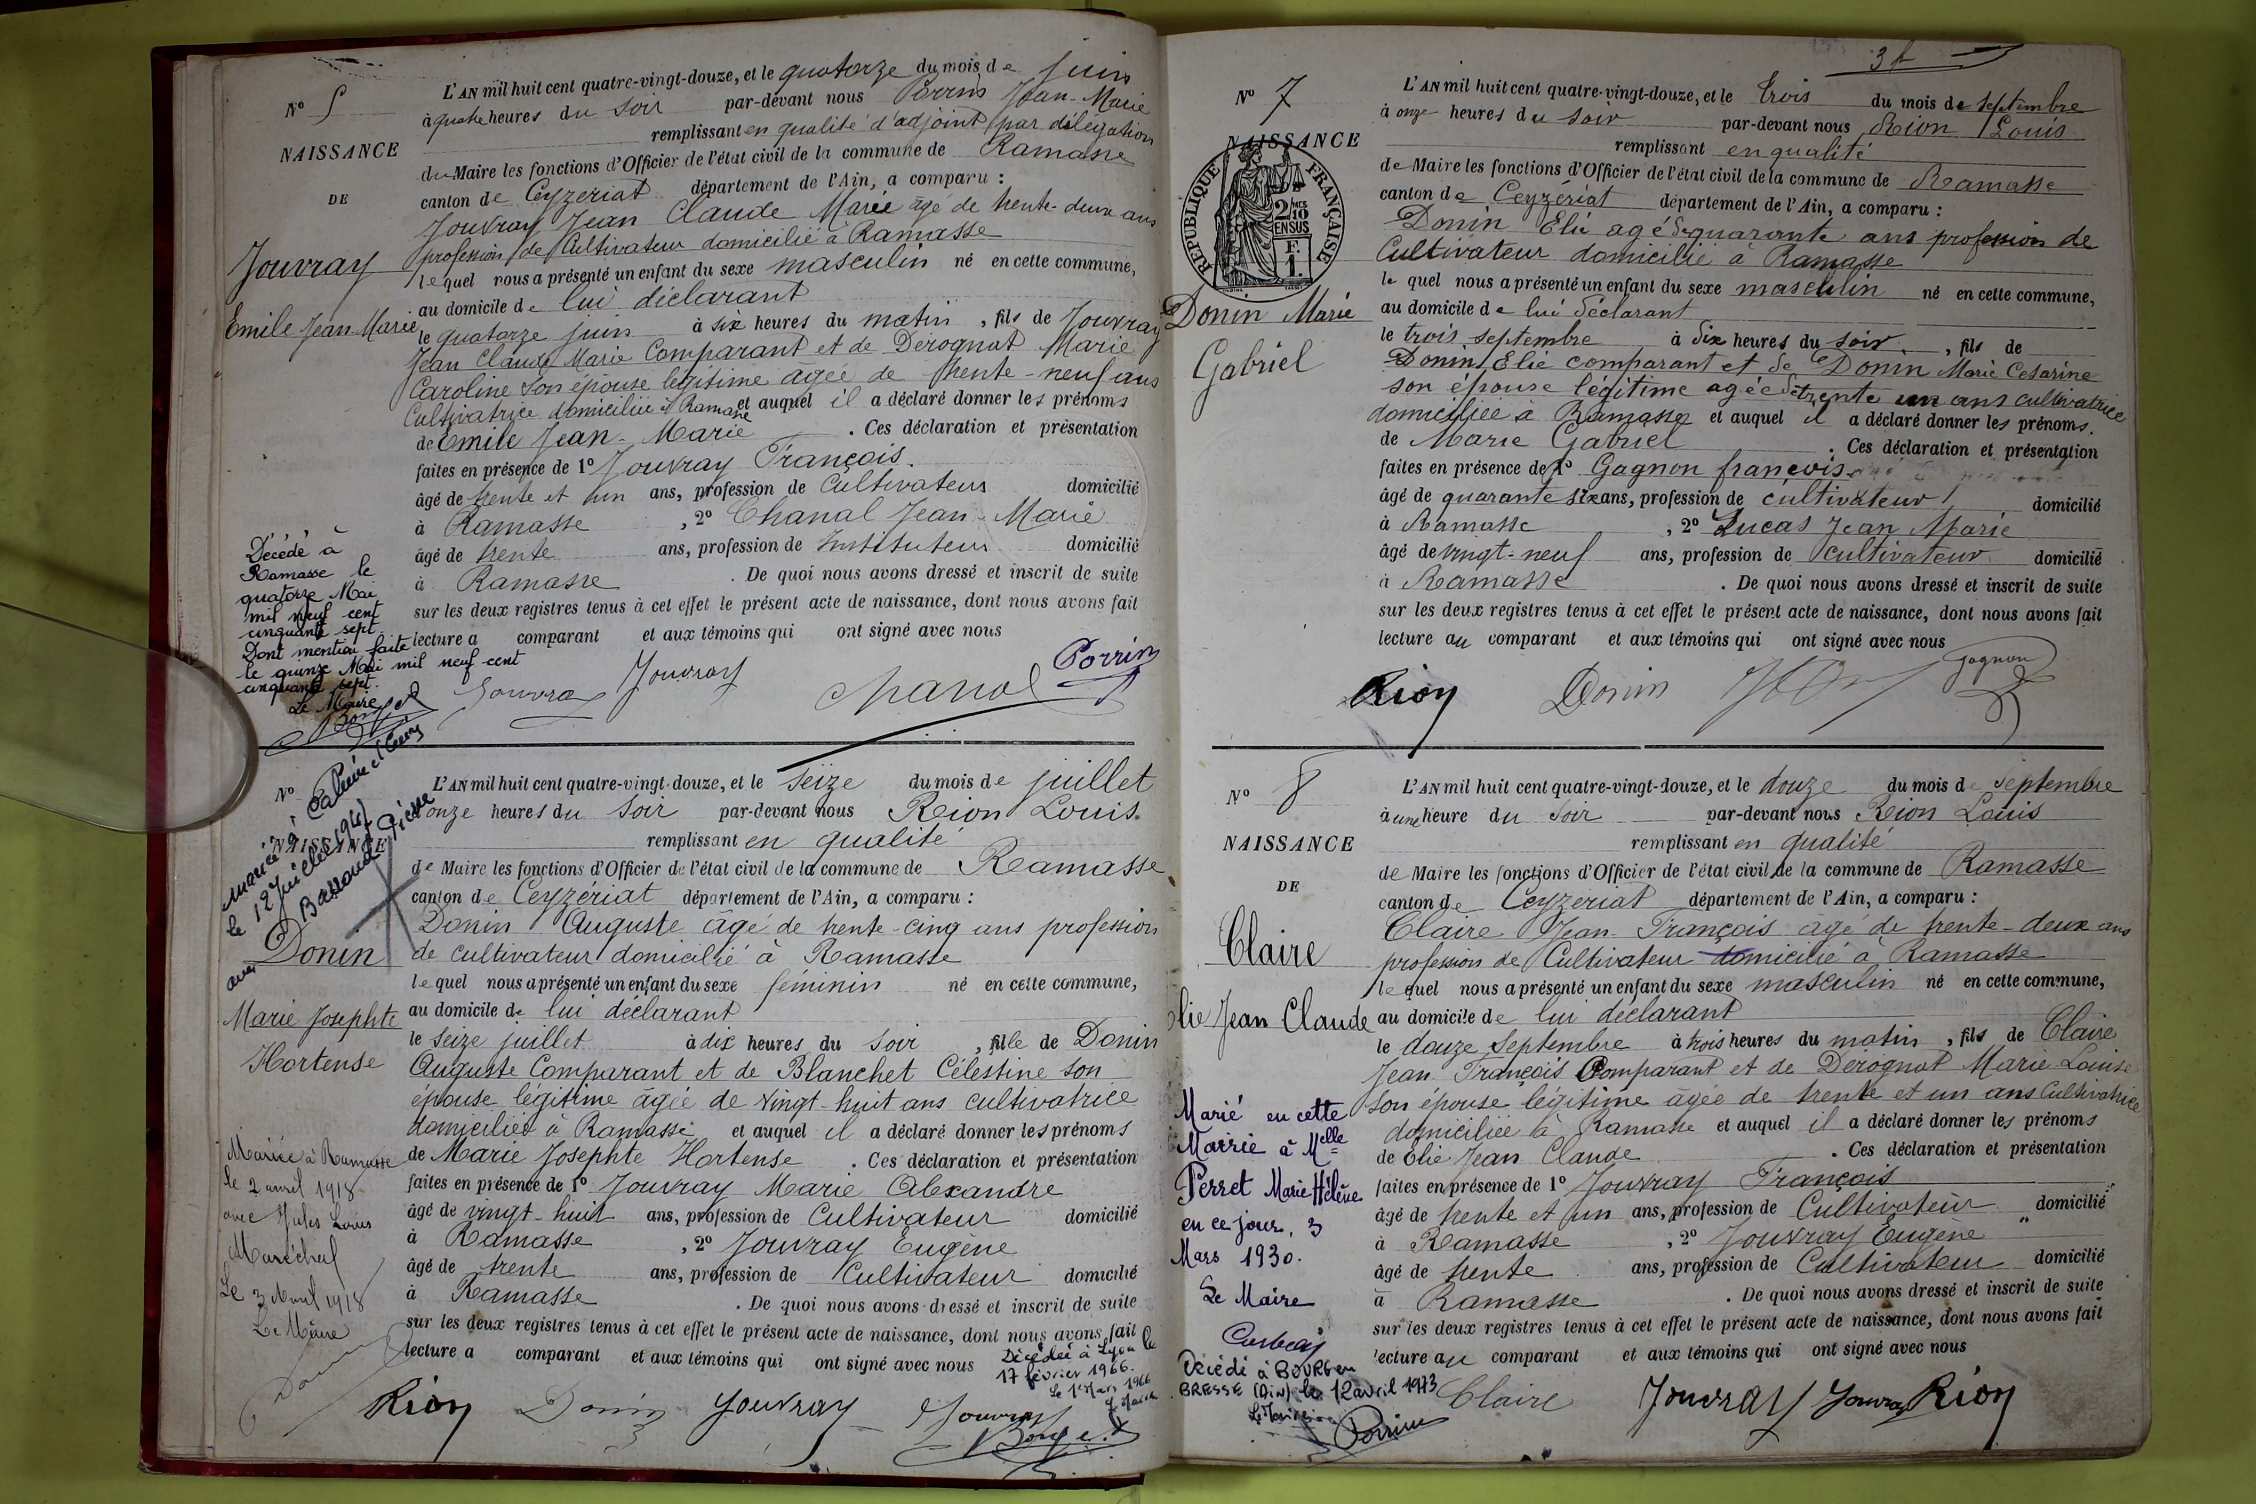 N° 5
NAISSANCE
DE
Jouvray
Emile Jean Marie
L'AN mil huit cent quatre-vingt-douze, et le quatorze du mois de juin
à quatre heures du soir par-devant nous Perrin Jean-Marie
remplissant en qualité d'adjoint par délégation
du Maire les fonctions d'Officier de l'état civil de la commune de Ramasse
canton de Ceyzériat département de l'Ain, a comparu :
Jouvray Jean Claude Marie âgé de trente-deux ans
profession de Cultivateur domicilié à Ramasse
lequel nous a présenté un enfant du sexe masculin né en cette commune,
au domicile de lui déclarant
le quatorze juin à six heures du matin, fils de Jouvray
Jean Claude Marie Comparant et de Derognat Marie
Caroline son épouse légitime agée de trente-neuf ans
Cultivatrice domiciliée à Ramasse et auquel il a déclaré donner les prénoms
de Emile Jean-Marie. Ces déclaration et présentation
faites en présence de 1° Jouvray François.
âgé de trente et un ans, profession de Cultivateur domicilié
à Ramasse, 2° Chanal Jean-Marie
âgé de trente ans, profession de Instituteur domicilié
à Ramasse. De quoi nous avons dressé et inscrit de suite
sur les deux registres tenus à cet effet le présent acte de naissance, dont nous avons fait
lecture a comparant et aux témoins qui ont signé avec nous
Décédé à
Ramasse le
quatorze Mai
mil neuf cent
cinquante sept
Dont mention faite
le quinze Mai mil neuf cent
cinquante sept.
Le Maire
Jouvray Jouvray Chanal Perrin
N°
NAISSANCE
mariée à
le 12 Juillet 1941
avec
Donin
Marie Josephte
Hortense
L'AN mil huit cent quatre-vingt-douze, et le seize du mois de juillet
onze heures du soir par-devant nous Rion Louis.
remplissant en qualité
de Maire les fonctions d'Officier de l'état civil de la commune de Ramasse
canton de Ceyzériat département de l'Ain, a comparu :
Donin Auguste âgé de trente-cinq ans profession
de cultivateur domicilié à Ramasse
lequel nous a présenté un enfant du sexe féminin né en cette commune,
au domicile de lui déclarant
le seize juillet à dix heures du soir, fille de Donin
Auguste Comparant et de Blanchet Célestine son
épouse légitime âgée de vingt-huit ans cultivatrice
domiciliés à Ramasse et auquel il a déclaré donner les prénoms
de Marie Josephte Hortense. Ces déclaration et présentation
faites en présence de 1° Jouvray Marie Alexandre
âgé de vingt-huit ans, profession de Cultivateur domicilié
à Ramasse, 2° Jouvray Eugène
âgé de trente ans, profession de Cultivateur domicilié
à Ramasse. De quoi nous avons dressé et inscrit de suite
sur les deux registres tenus à cet effet le présent acte de naissance, dont nous avons fait
lecture a comparant et aux témoins qui ont signé avec nous
Mariée à Ramasse
le 2 avril 1918
avec Jules Louis
Maréchal
Le 3 Avril 1918
Le Maire
Décédée à Lyon le
17 février 1966.
Le 1er Mars 1966
Le Maire
Rion Donin Jouvray Jouvray
N° 7
NAISSANCE
RÉPUBLIQUE FRANÇAISE
Donin Marie
Gabriel
L'AN mil huit cent quatre-vingt-douze, et le trois du mois de septembre
à onze heures du soir par-devant nous Rion Louis
remplissant en qualité
de Maire les fonctions d'Officier de l'état civil de la commune de Ramasse
canton de Ceyzériat département de l'Ain, a comparu :
Donin Elie agé de quarante ans profession de
Cultivateur domicilié à Ramasse
lequel nous a présenté un enfant du sexe masculin né en cette commune,
au domicile de lui déclarant
le trois septembre à dix heures du soir, fils de
Donin Elie comparant et de Donin Marie Césarine
son épouse légitime agée de trente un ans cultivatrice
domiciliée à Ramasse et auquel il a déclaré donner les prénoms.
de Marie Gabriel. Ces déclaration et présentation
faites en présence de 1° Gagnon françois
âgé de quarante six ans, profession de cultivateur domicilié
à Ramasse, 2° Lucas Jean Marie
âgé de vingt-neuf ans, profession de cultivateur domicilié
à Ramasse. De quoi nous avons dressé et inscrit de suite
sur les deux registres tenus à cet effet le présent acte de naissance, dont nous avons fait
lecture au comparant et aux témoins qui ont signé avec nous
Rion Donin Gagnon
N° 8
NAISSANCE
DE
Claire
Elie Jean Claude
L'AN mil huit cent quatre-vingt-douze, et le douze du mois de septembre
à une heure du soir par-devant nous Rion Louis
remplissant en qualité
de Maire les fonctions d'Officier de l'état civil de la commune de Ramasse
canton de Ceyzériat département de l'Ain, a comparu :
Claire Jean-François âgé de trente-deux ans
profession de Cultivateur domicilié à Ramasse
lequel nous a présenté un enfant du sexe masculin né en cette commune,
au domicile de lui déclarant
le douze Septembre à trois heures du matin, fils de Claire
Jean François Comparant et de Dérognat Marie Louise
son épouse légitime âgée de trente et un ans Cultivatrice
domiciliée à Ramasse et auquel il a déclaré donner les prénoms
de Elie Jean Claude. Ces déclaration et présentation
faites en présence de 1° Jouvray François
âgé de trente et un ans, profession de Cultivateur domicilié
à Ramasse, 2° Jouvray Eugène
âgé de trente ans, profession de Cultivateur domicilié
à Ramasse. De quoi nous avons dressé et inscrit de suite
sur les deux registres tenus à cet effet le présent acte de naissance, dont nous avons fait
lecture au comparant et aux témoins qui ont signé avec nous
Marié en cette
Mairie à Melle
Perret Marie Hélène
en ce jour, 3
Mars 1930.
Le Maire
Décédé à BOURG en
BRESSE (Ain) le 12 avril 1973
Perrin
Claire Jouvray Jouvray Rion